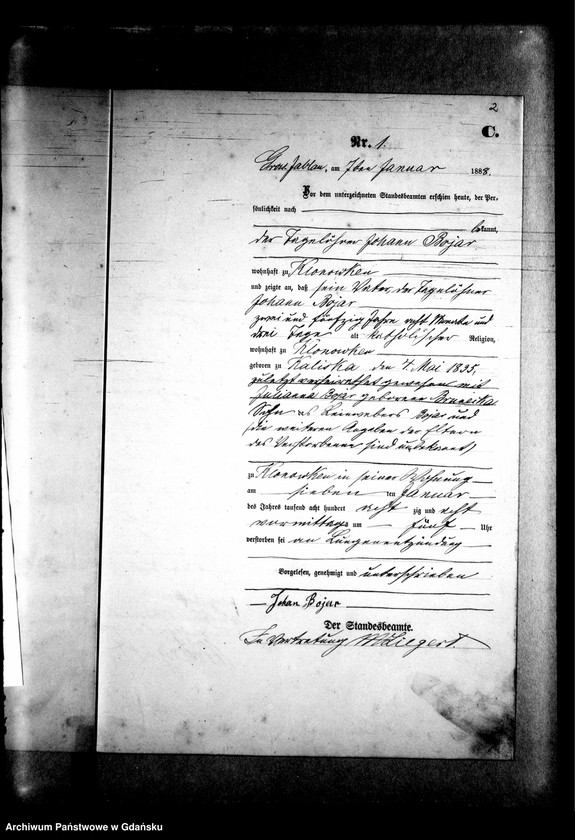 2
C.
Nr. 1.
Gross Jablau, am 7ten Januar 1888.
Vor dem unterzeichneten Standesbeamten erschien heute, der Per-
sönlichkeit nach
bekannt,
der Tagelöhner Johann Bojar
wohnhaft zu Klonowken
und zeigte an, daß sein Vater, der Tagelöhner
Johann Bojar
zwei und fünfzig Jahre acht Monate und
drei Tage alt katholischer Religion,
wohnhaft zu Klonowken
geboren zu Kaliska den 4. Mai 1835,
zuletzt verheirathet gewesen mit
Julianna Bojar geborene
Sohn des Leinwebers Bojar und
(die weiteren Angaben der Eltern
des Verstorbenen sind unbekannt)
zu Klonowken in seiner Wohnung
am sieben ten Januar
des Jahres tausend acht hundert acht zig und acht
vormittags um fünf Uhr
verstorben sei an Lungenentzündung
Vorgelesen, genehmigt und unterschrieben
Johan Bojar
Der Standesbeamte.
In Vertretung
Archiwum Państwowe w Gdańsku